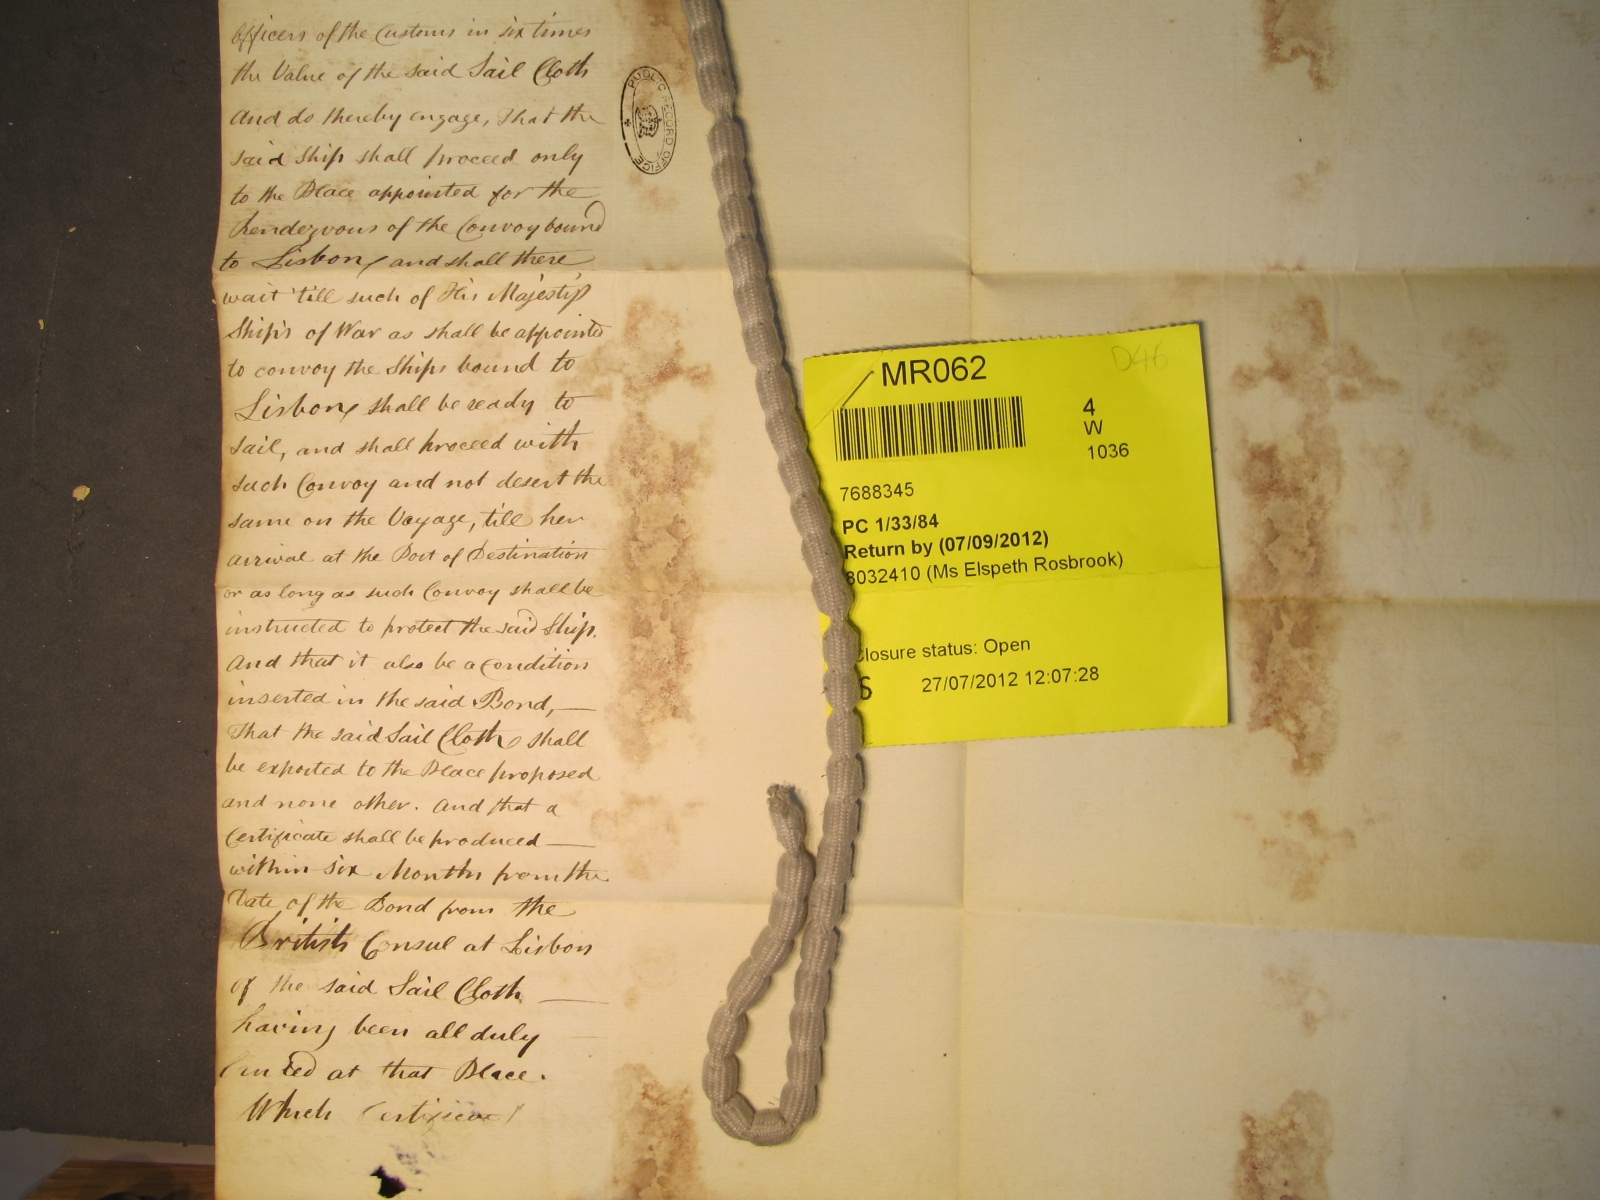 Officers of the Customs in six times
the Value of the said Sail Cloth
And do thereby engage, That the
said Ship shall proceed only
to the Place appointed for the
Rendezvous of the Convoy bound
to Lisbon, and shall there
wait 'till such of His Majesty's
Ships of War as shall be appointed
to convoy the Ships bound to
Lisbon, shall be ready to
Sail, and shall proceed with
such Convoy and not desert the
same on the Voyage, till her
arrival at the Port of Destination
or as long as such Convoy shall be
instructed to protect the said Ship.
And that it also be a condition
inserted in the said Bond,—
That the said Sail Cloth shall
be exported to the Place proposed
and none other. And that a
Certificate shall be produced—
within six Months from the
Date of the Bond from the
British Consul at Lisbon
of the said Sail Cloth —
having been all duly
landed at that Place.
Which Certificate
PUBLIC RECORD OFFICE
MR062
D46
4
W
1036
7688345
PC 1/33/84
Return by (07/09/2012)
8032410 (Ms Elspeth Rosbrook)
closure status: Open
S 27/07/2012 12:07:28